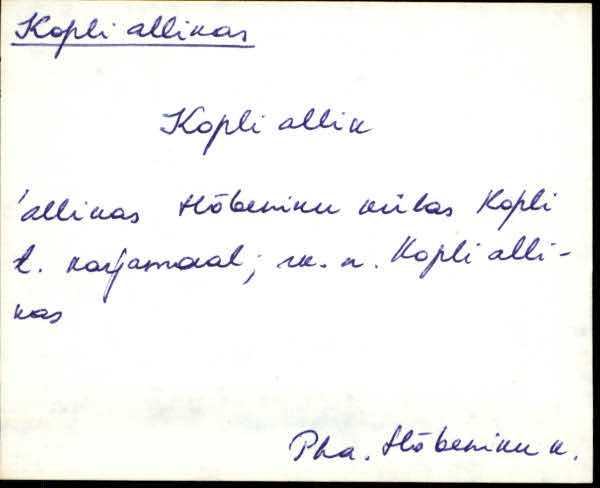 Kopli allikas
Kopli allik
'allikas Hõbeniku külas Kopli
t. karjamaal; rk. n. Kopli alli-
kas
Pha. Hõbeniku k.